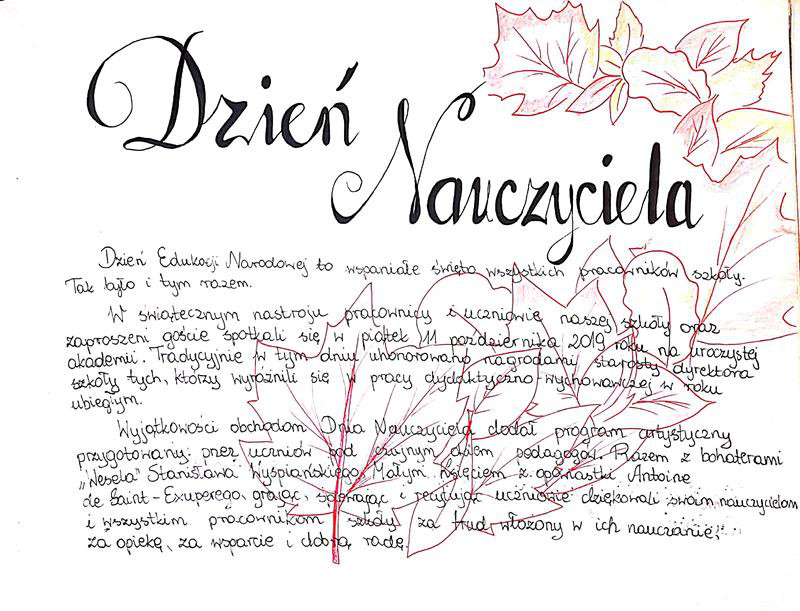 Dzień
Nauczyciela
Dzień Edukacji Narodowej to wspaniałe święto wszystkich pracowników szkoły.
Tak było i tym razem.
W świątecznym nastroju pracownicy i uczniowie naszej szkoły oraz
zaproszeni goście spotkali się w piątek 11 października 2019 roku na uroczystej
akademii. Tradycyjnie w tym dniu uhonorowano nagrodami starosty i dyrektora
szkoły tych, którzy wyróżnili się w pracy dydaktyczno-wychowawczej w roku
ubiegłym.
Wyjątkowości obchodom Dnia Nauczyciela dodał program artystyczny
przygotowany przez uczniów pod czujnym okiem pedagogów. Razem z bohaterami
„Wesela" Stanisława Wyspiańskiego, Małym Księciem z opowiastki Antoine
de Saint-Exuperego, grając, śpiewając i recytując uczniowie dziękowali swoim nauczycielom
i wszystkim pracownikom szkoły za trud włożony w ich nauczanie,
za opiekę, za wsparcie i dobrą radę.